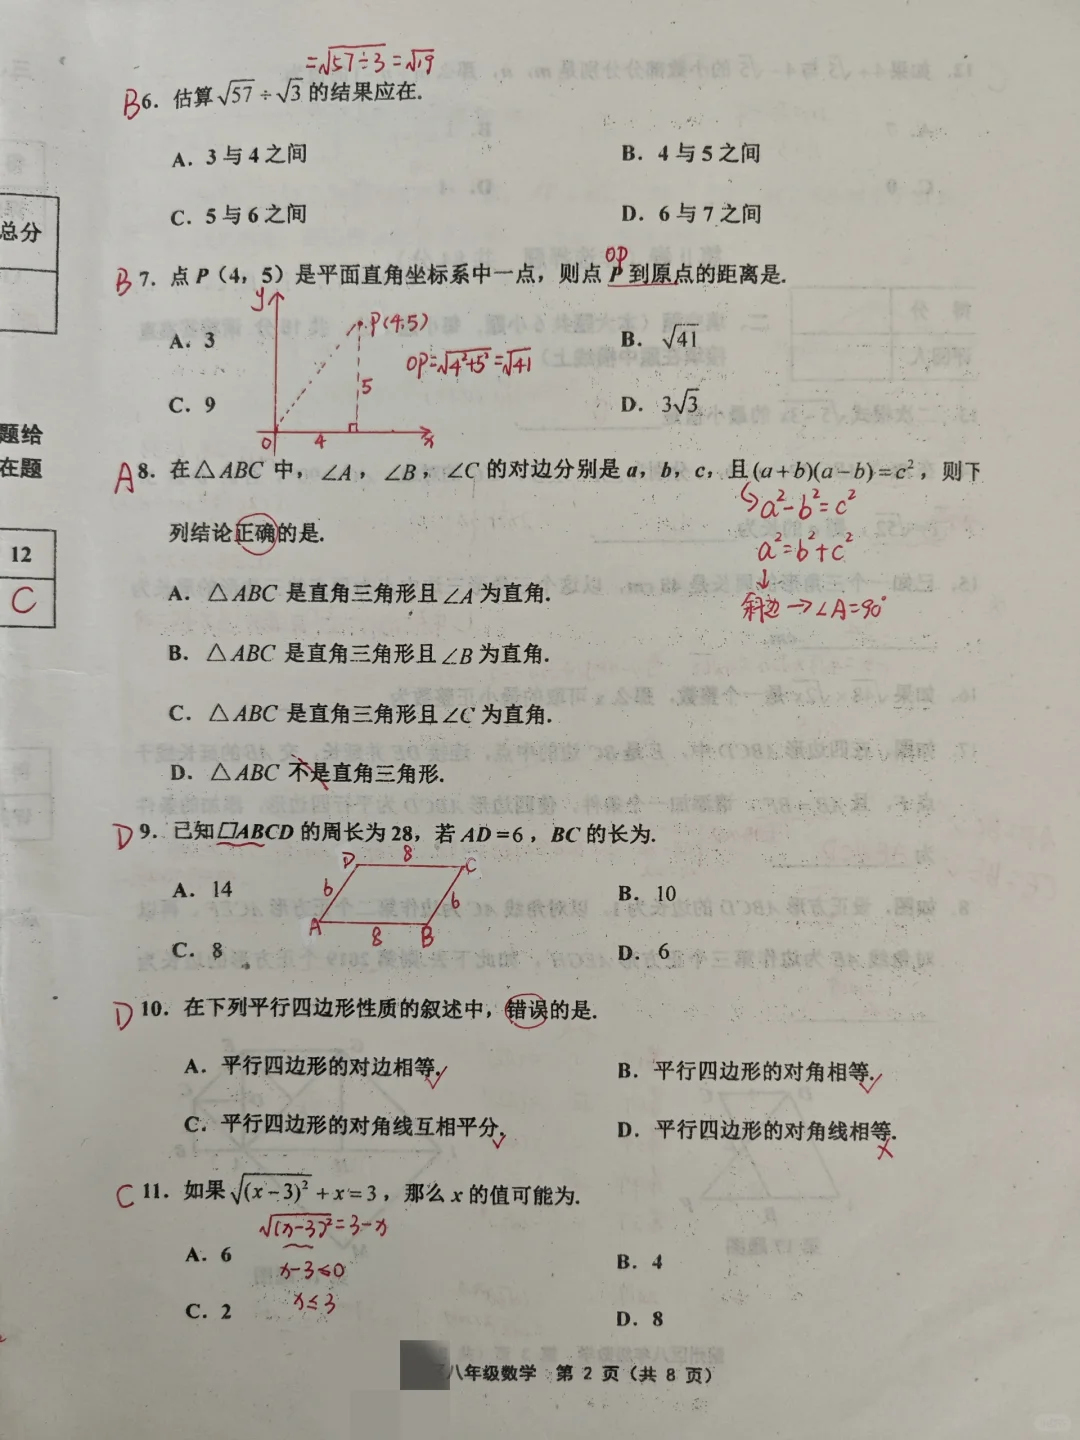 =√57÷3=√19
B 6. 估算√57÷√3的结果应在.
A. 3与4之间 B. 4与5之间
C. 5与6之间 D. 6与7之间
总分
OP
B 7. 点P（4，5）是平面直角坐标系中一点，则点P到原点的距离是.
y P(4,5)
A. 3 B. √41
OP=√4²+5²=√41
5
C. 9 D. 3√3
0 4 x
题给
在题
A 8. 在△ABC中，∠A，∠B，∠C的对边分别是a，b，c，且(a+b)(a−b)=c²，则下
a²-b²=c²
列结论正确的是.
a²=b²+c²
12
C
A. △ABC是直角三角形且∠A为直角.
斜边→∠A=90°
B. △ABC是直角三角形且∠B为直角.
C. △ABC是直角三角形且∠C为直角.
D. △ABC不是直角三角形.
D 9. 已知□ABCD的周长为28，若AD=6，BC的长为.
D 8 C
A. 14 B. 10
6 6
A 8 B
C. 8 D. 6
D 10. 在下列平行四边形性质的叙述中，错误的是.
A. 平行四边形的对边相等.✓ B. 平行四边形的对角相等.✓
C. 平行四边形的对角线互相平分.✓ D. 平行四边形的对角线相等.×
C 11. 如果√(x−3)²+x=3，那么x的值可能为.
√(x-3)²=3-x
A. 6 B. 4
x-3≤0
x≤3
C. 2 D. 8
八年级数学 第2页（共8页）